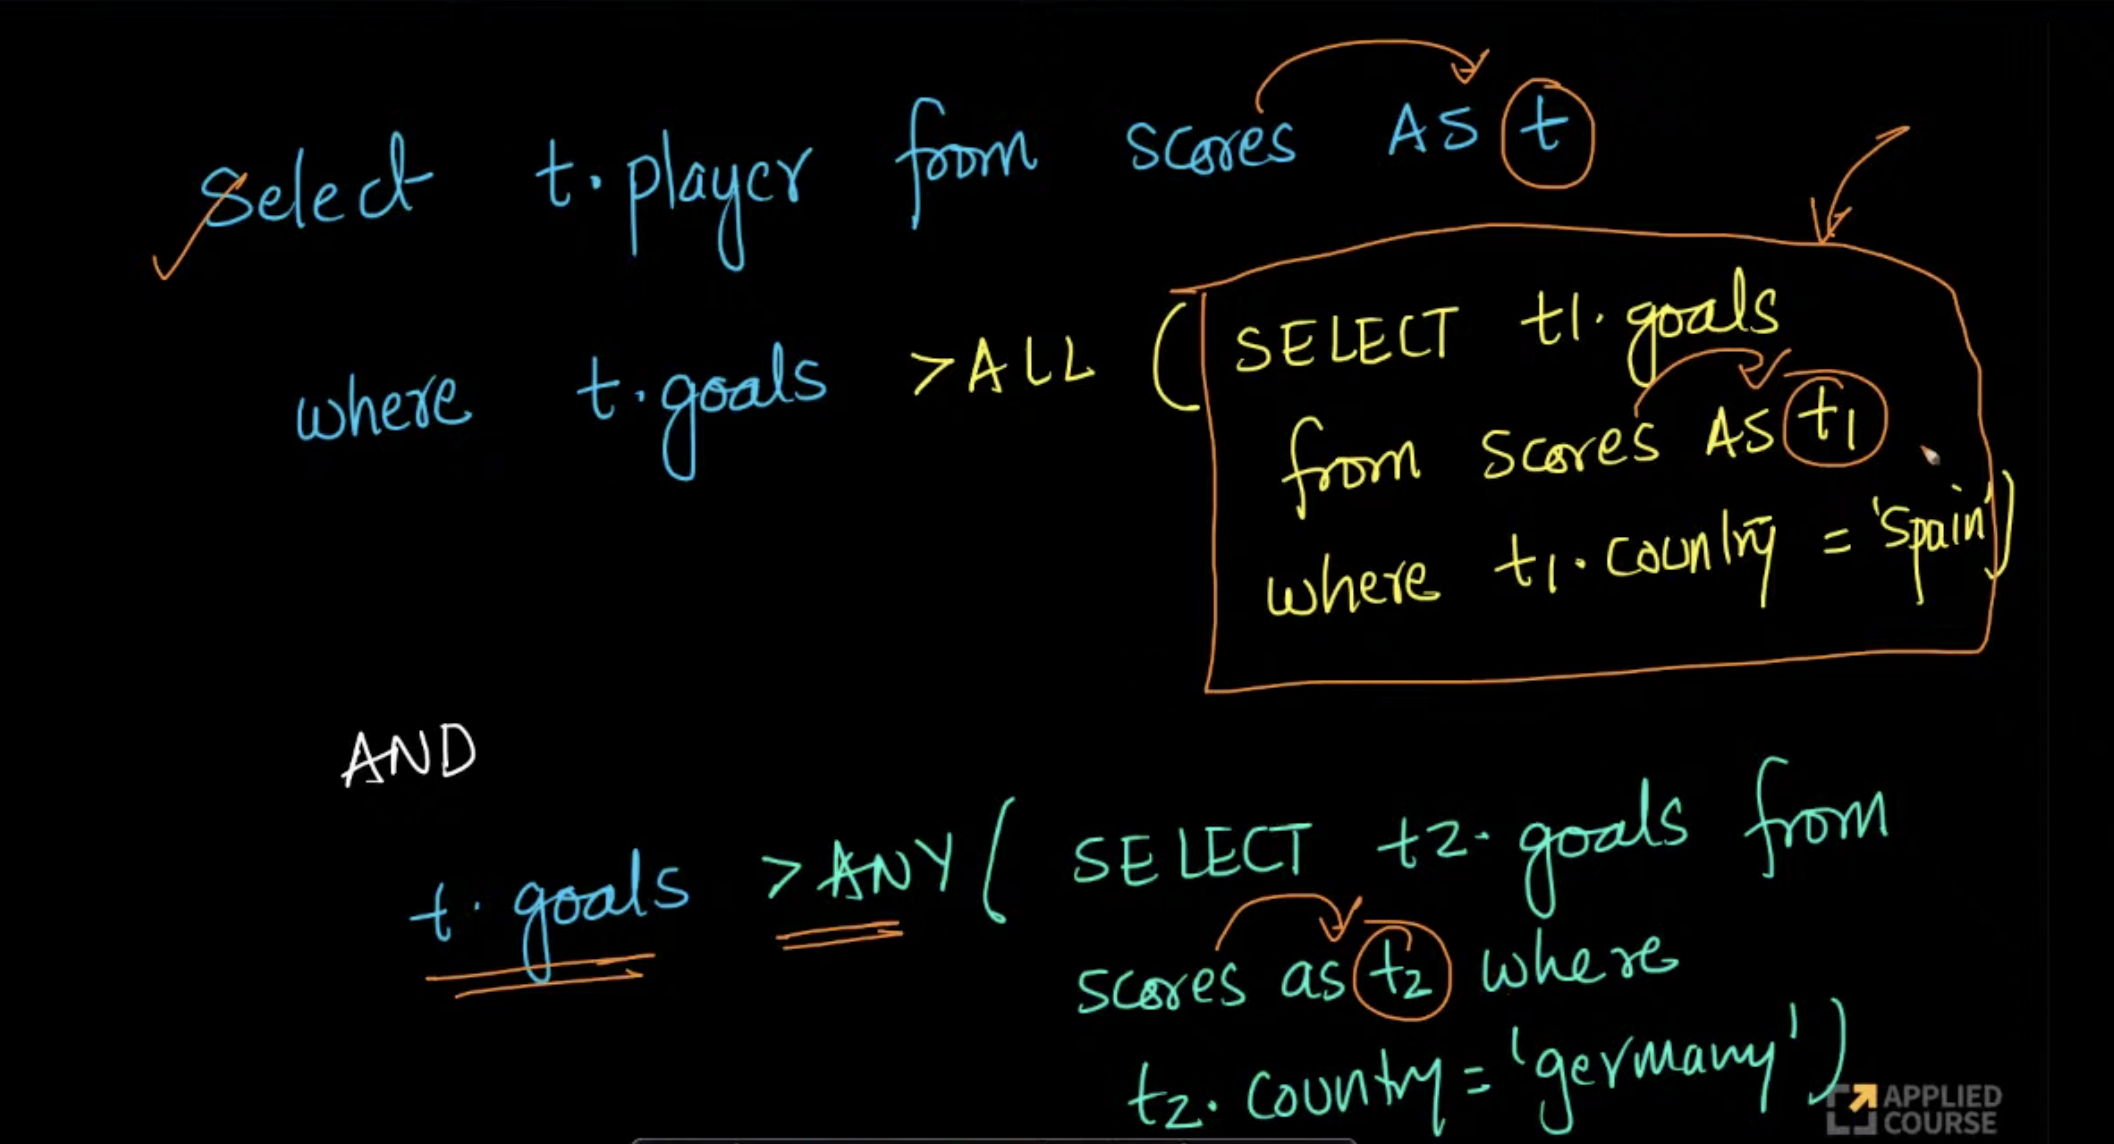 Select t.player from scores AS t
where t.goals >ALL ( SELECT t1.goals
from scores AS t1
where t1.country = 'spain')
AND
t.goals >ANY ( SELECT t2.goals from
scores as t2 where
t2.country = 'germany')
APPLIED
COURSE